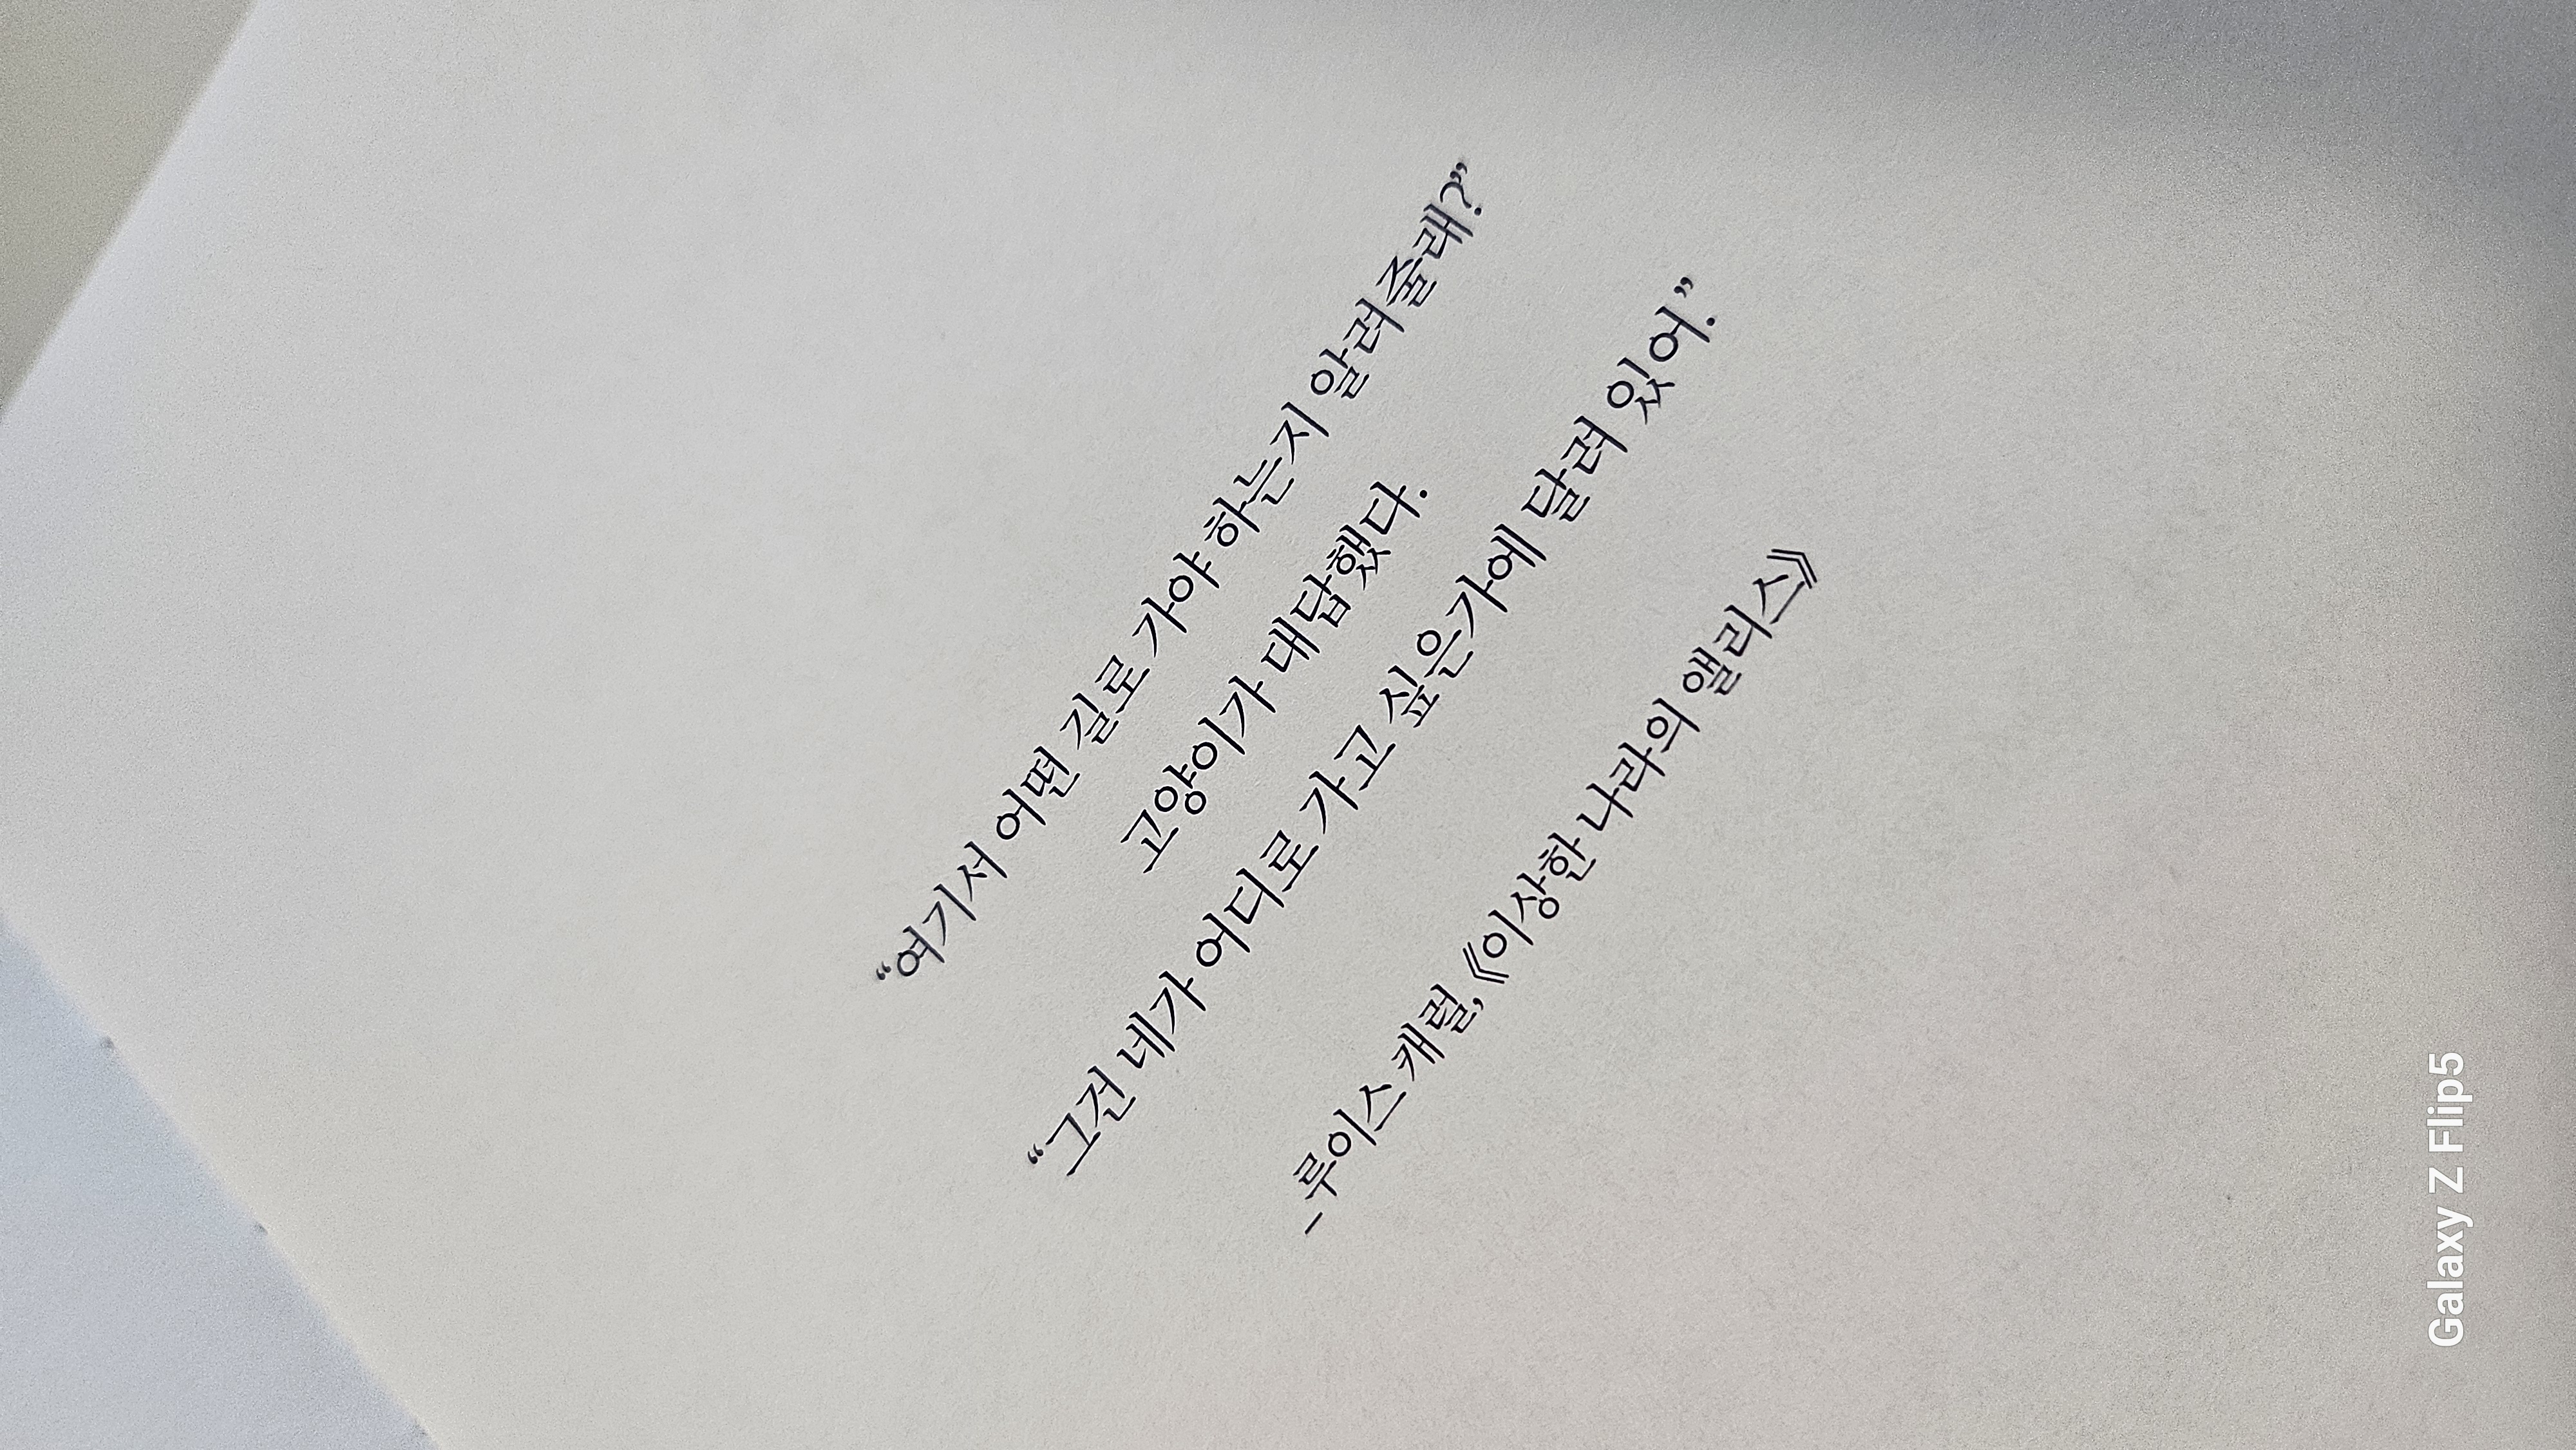 “여기서 어떤 길로 가야 하는지 알려줄래?”
고양이가 대답했다.
“그건 네가 어디로 가고 싶은가에 달려 있어.”
– 루이스 캐럴, 《이상한 나라의 앨리스》
Galaxy Z Flip5